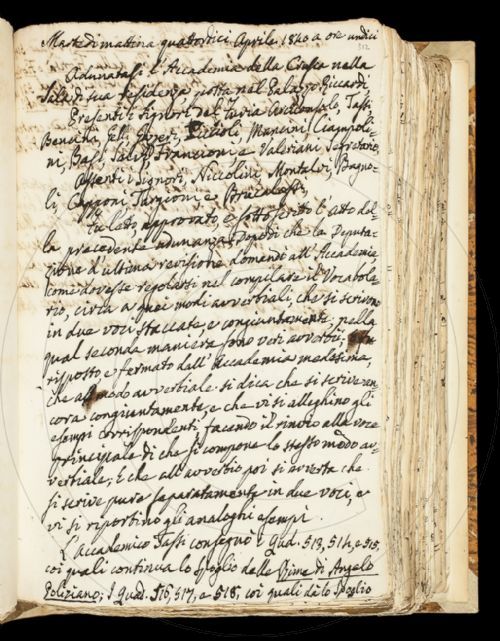 Martedì mattina quattordici Aprile 1840 a ore undici
312
Adunatasi l'Accademia della Crusca nella
Sala di sua residenza posta nel Palazzo Riccardi
Presenti i Signori Del Furia Arciconsolo, Tassi
Bencini, Gelli, Poggi, Piccioli, Mancini, Ciampoli-
ni, Basi, Salvi, Francioni e Valeriani Segretario.
Assenti i Signori, Niccolini, Montalvi, Bagno-
li, Capponi, Targioni, e Brucalassi.
Fu letto, approvato, e sottoscritto l'atto del-
la precedente adunanza. Dopo di che la Deputa-
zione d'ultima revisione domandò all'Accademia
come dovesse regolarsi nel compilare il Vocabola-
rio, circa a quei modi avverbiali, che si scrivono
in due voci staccate, e congiuntamente, nella
qual seconda maniera sono veri avverbii; fu
risposto e fermato dall'Accademia medesima,
che al modo avverbiale si dica che si scrive an-
cora congiuntamente, e che vi si alleghino gli
esempi corrispondenti facendo il rinvio alla voce
principale di che si compone lo stesso modo av-
verbiale; E che all'avverbio poi si avverta che
si scrive pure separatamente in due voci, e
vi si riportino gli analoghi esempi.
L'Accademico Tassi consegnò i Quad. 513, 514, e 515,
coi quali continua lo spoglio delle Rime di Angelo
Poliziano; I Quad. 516, 517, e 518, coi quali dà lo Spoglio